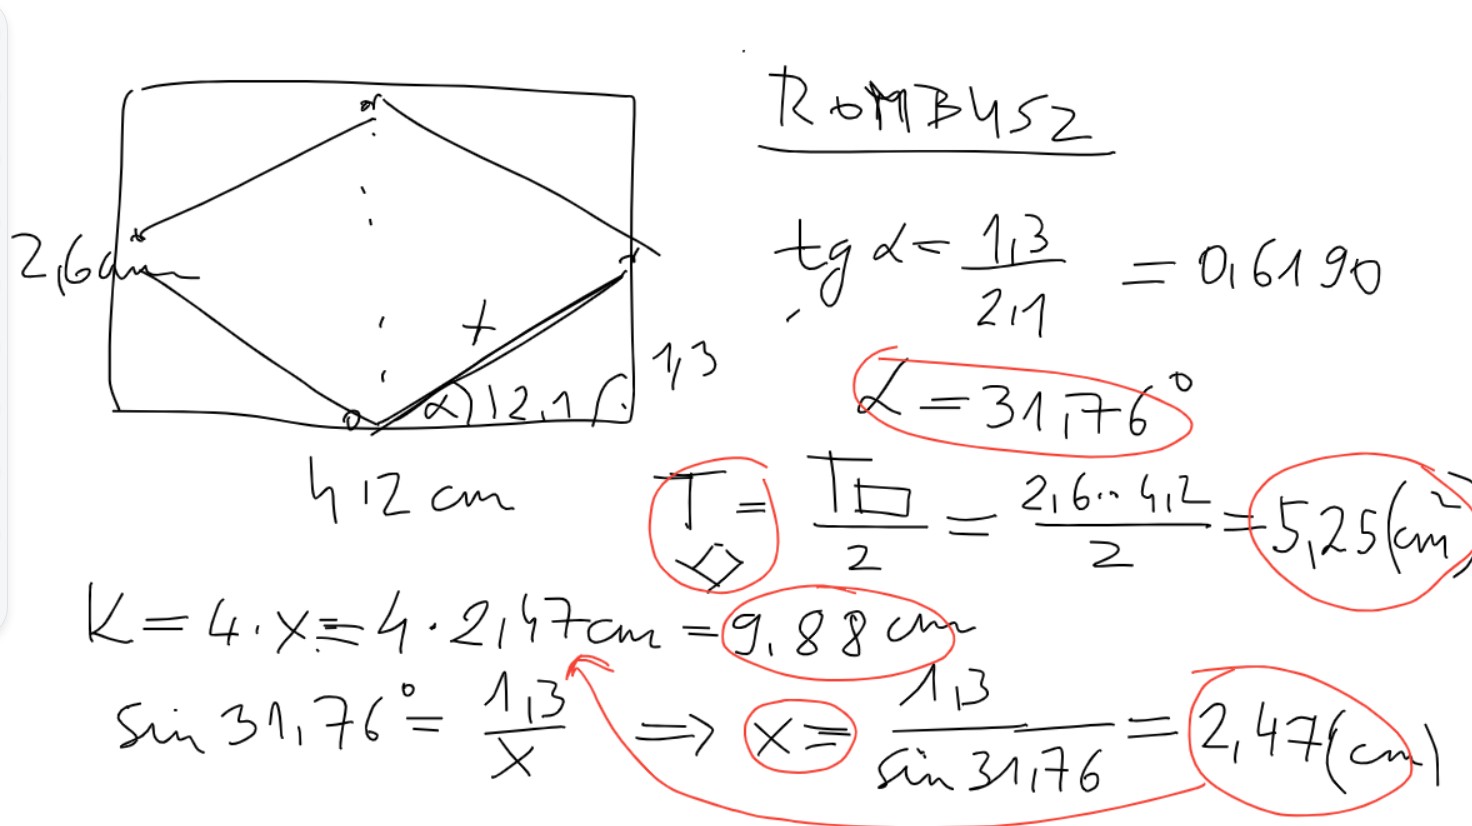 ROMBUSZ
2,6 cm
x
α
2,1
1,3
4,2 cm
tg α = 1,3 / 2,1 = 0,6190
α = 31,76°
T◇ = T▭ / 2 = 2,6 · 4,2 / 2 = 5,25 (cm²)
K = 4 · x = 4 · 2,47 cm = 9,88 cm
sin 31,76° = 1,3 / x ⇒ x = 1,3 / sin 31,76 = 2,47 (cm)